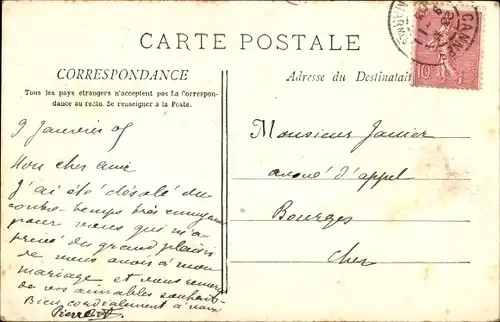 CARTE POSTALE
CORRESPONDANCE
Tous les pays étrangers n'acceptent pas la Correspon-
dance au recto. Se renseigner à la Poste.
9 Janvier 05
Mon cher ami
J'ai été désolé du
contre-temps très ennuyeux
pour vous qui m'a
privé du grand plaisir
de vous avoir à mon
mariage et vous remercie
de vos aimables souhaits.
Bien cordialement à vous
Pierre
Adresse du Destinatai
Monsieur Janier
avoué d'appel
Bourges
Cher
CANN
10